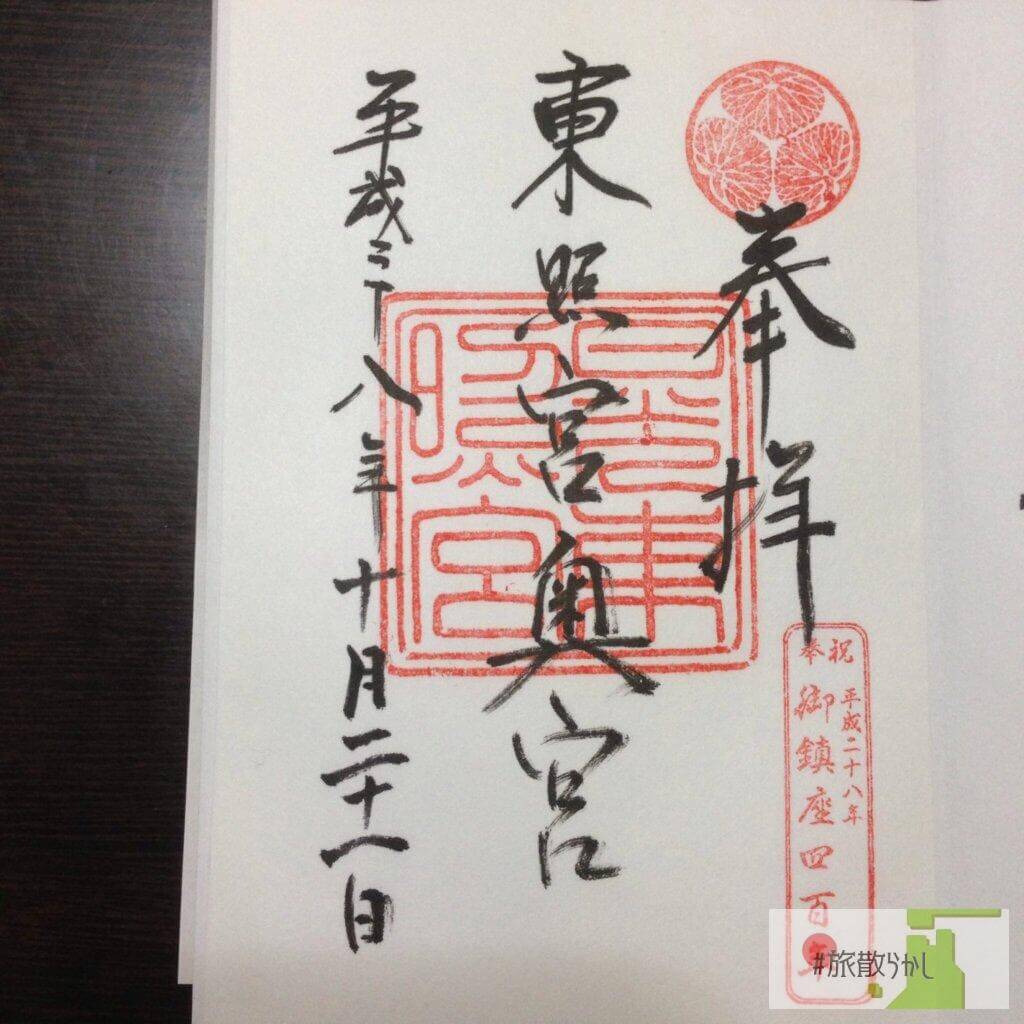 奉拝
東照宮奥宮
平成二十八年十月二十一日
日光東照宮
奉祝
平成二十八年
御鎮座四百年
#旅散らかし